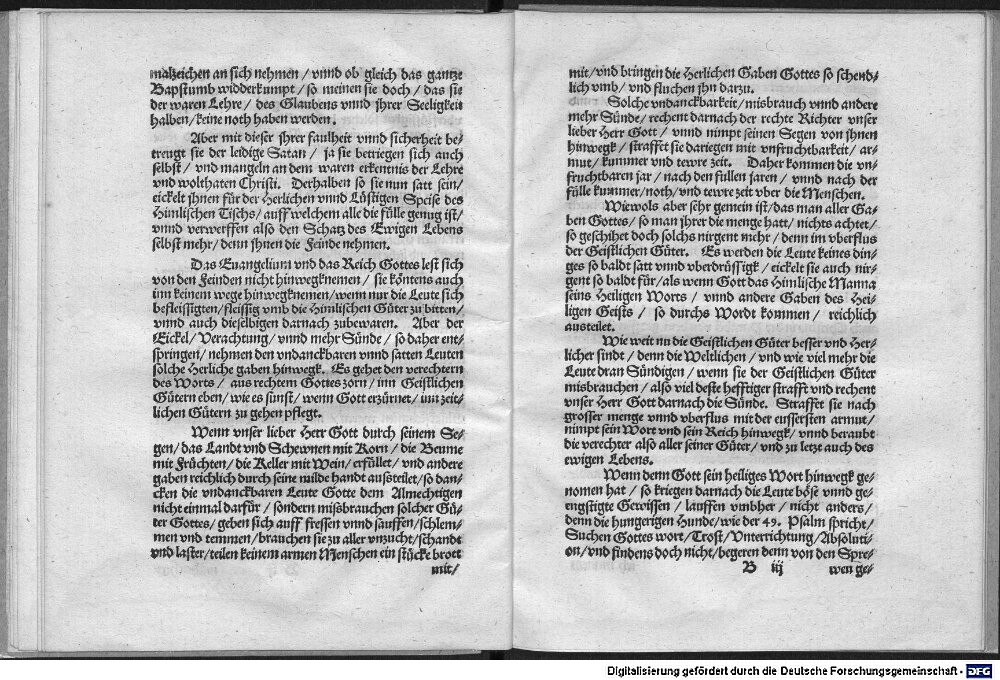 malzeichen an sich nehmen / vnnd ob gleich das gantze
Bapstumb widderkumpt / so meinen sie doch / das sie
der waren Lehre / des Glaubens vnnd jhrer Seeligkeit
halben / keine noth haben werden.
Aber mit dieser jhrer faulheit vnnd sicherheit be-
treugt sie der leidige Satan / ja sie betriegen sich auch
selbst / vnd mangeln an dem waren erkentnis der Lehre
vnd wolthaten Christi. Derhalben so sie nun satt sein /
eickelt jhnen für der Herlichen vnnd Lüstigen Speise des
Himlischen Tischs / auff welchem alle die fülle genug ist /
vnnd verwerffen also den Schatz des Ewigen Lebens
selbst mehr / denn jhnen die Feinde nehmen.
Das Euangelium vnd das Reich Gottes lest sich
von den Feinden nicht hinwegknemen / sie köntens auch
inn keinem wege hinwegknemen / wenn nur die Leute sich
befleissigten / fleissig vmb die Himlischen Güter zu bitten /
vnnd auch dieselbigen darnach zubewaren. Aber der
Eickel / Verachtung / vnnd mehr Sünde / so daher ent-
springen / nehmen den vndanckbaren vnnd satten Leuten
solche Herliche gaben hinwegk. Es gehet den verechtern
des Worts / aus rechtem Gottes zorn / inn Geistlichen
Gütern eben / wie es sunst / wenn Gott erzürnet / im zeit-
lichen Gütern zu gehen pflegt.
Wenn vnser lieber Herr Gott durch seinem Se-
gen / das Landt vnd Schewnen mit Korn / die Beume
mit Früchten / die Keller mit Wein / erfüllet / vnd andere
gaben reichlich durch seine milde handt austeilet / so dan-
cken die vndanckbaren Leute Gotte dem Almechtigen
nicht einmal darfür / sondern misbrauchen solcher Gü-
ter Gottes / geben sich auff fressen vnnd sauffen / schlem-
men vnd temmen / brauchen sie zu aller vnzucht / schandt
vnd laster / teilen keinem armen Menschen ein stücke brott
mit /
mit / vnd bringen die Herlichen Gaben Gottes so schend-
lich vmb / vnd fluchen jhn darzu.
Solche vndanckbarkeit / misbrauch vnnd andere
mehr Sünde / rechent darnach der rechte Richter vnser
lieber Herr Gott / vnnd nimpt seinen Segen von jhnen
hinwegk / straffet sie dariegen mit vnfruchtbarkeit / ar-
mut / kummer vnd tewre zeit. Daher kommen die vn-
fruchtbaren jar / nach den fullen jaren / vnnd nach der
fülle kummer / noth / vnd tewre zeit vber die Menschen.
Wiewols aber sehr gemein ist / das man aller Ga-
ben Gottes / so man jhrer die menge hatt / nichts achtet /
so geschihet doch solchs nirgent mehr / denn im vberflus
der Geistlichen Güter. Es werden die Leute keines din-
ges so baldt satt vnnd vberdrüssigk / eickelt sie auch nir-
gent so baldt für / als wenn Gott das Himlische Manna
seins Heiligen Worts / vnnd andere Gaben des Hei-
ligen Geists / so durchs Wordt kommen / reichlich
austeilet.
Wie weit nu die Geistlichen Güter besser vnd Her-
licher sindt / denn die Weltlichen / vnd wie viel mehr die
Leute dran Sündigen / wenn sie der Geistlichen Güter
misbrauchen / also viel deste hefftiger strafft vnd rechent
vnser Herr Gott darnach die Sünde. Straffet sie nach
grosser menge vnnd vberflus mit der eussersten armut /
nimpt sein Wort vnd sein Reich hinwegk / vnnd beraubt
die verechter also aller seiner Güter / vnd zu letze auch des
ewigen Lebens.
Wenn denn Gott sein heiliges Wort hinwegk ge-
nomen hat / so kriegen darnach die Leute böse vnnd ge-
engstigte Gewissen / lauffen vmbher / nicht anders /
denn die hungerigen Hunde / wie der 49. Psalm spricht /
Suchen Gottes wort / Trost / Vnterrichtung / Absoluti-
on / vnd findens doch nicht / begeren denn von den Spre-
B iij wen ge-
Digitalisierung gefördert durch die Deutsche Forschungsgemeinschaft - DFG